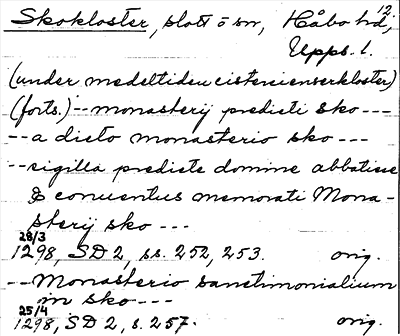 12
Skokloster, slott o sn, Håbo hd,
Upps. l.
(under medeltiden cistercienserkloster)
(forts.) -- monasterij predicti sko ---
-- a dicto monasterio sko ---
-- sigilla predicte domine abbatisse
& conuentus memorati Mona-
sterij sko ---
28/3
1298, SD 2, ss. 252, 253. orig.
-- Monasterio sanctimonialium
in sko ---
25/4
1298, SD 2, s. 257. orig.